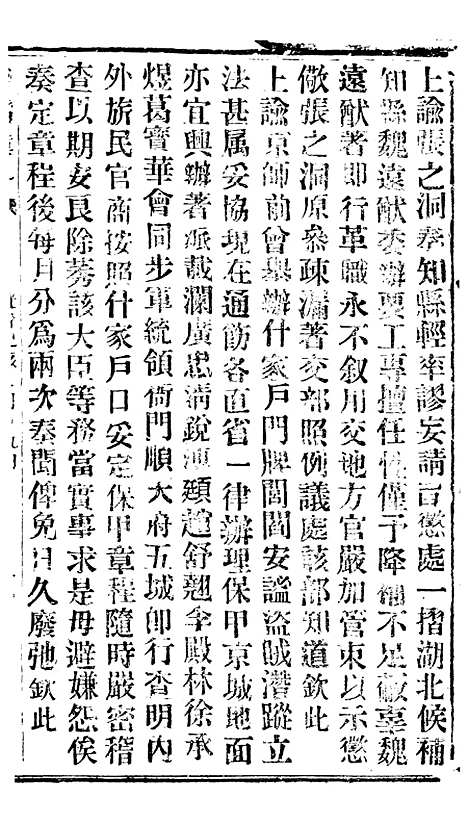 上諭張之洞奏知縣輕率謬妄請旨懲處一摺湖北候補
知縣魏遠猷委辦要工專擅任性僅予降補不足蔽辜魏
遠猷著即行革職永不叙用交地方官嚴加管束以示懲
儆張之洞原參疎漏著交部照例議處該部知道欽此
上諭京師前曾舉辦什家戶門牌閭閻安謐盜賊潛蹤立
法甚属妥協現在通飭各直省一律辦理保甲京城地面
亦宜興辦著派載瀾廣忠淸銳溥頲趙舒翹李殿林徐承
煜葛寶華會同步軍統領衙門順天府五城卽行查明內
外旅民官商按照什家戶口妥定保甲章程隨時嚴密稽
查以期安良除莠該大臣等務當實事求是毋避嫌怨俟
奏定章程後每月分爲兩次奏聞俾免日久廢弛欽此